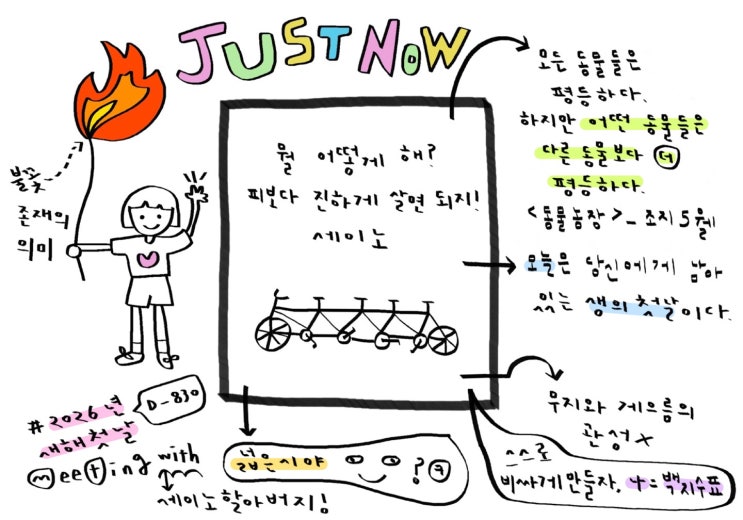 JUST NOW
불꽃
존재의
의미
뭘 어떻게 해?
피보다 진하게 살면 되지!
세이노
모든 동물들은
평등하다.
하지만 어떤 동물들은
다른 동물보다 더
평등하다.
<동물농장>_조지 5웰
오늘은 당신에게 남아
있는 생의 첫날이다.
무지와 게으름의
관성 x
스스로
비싸게 만들자. 나 = 백지수표
D-830
#2026년
새해 첫날
meeting with
세이노할아버지!
넓은시야 ?